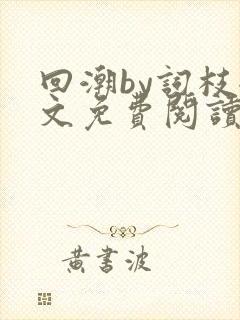 回潮by詞枝
文免費閱讀
黃書波